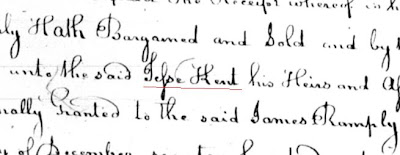 the Receipt whereof is h
ly Hath Bargained and Sold and by t
unto the said Jesse Kent his Heirs and As
nally Granted to the said James Rumply
of December